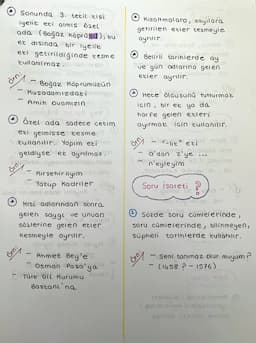 Sonunda 3. tekil kişi
iyelik eki almış özel
ada (Boğaz Köprüsü), bu
ek dışında bir iyelik
eki getirildiğinde kesme
kullanılmaz.
Örn/ - Boğaz Köprümüzün
- Kuşadamızdaki
- Amik Ovamızın
Özel ada sadece çekim
eki gelmişse kesme
kullanılır. Yapım eki
geldiyse ek ayrılmaz.
Örn/ - Kırşehirliyim
- Yakup Kadriler
Kişi adlarından sonra
gelen saygı ve unvan
sözlerine gelen ekler
kesmeyle ayrılır.
Örn/ - Ahmet Bey'e
- Osman Paşa'ya
- Türk Dil Kurumu
Başkanı'na
Kısaltmalara, sayılara
getirilen ekler kesmeyle
ayrılır.
Belirli tarihlerde ay
ve gün adlarına gelen
ekler ayrılır.
Hece ölçüsünü tutturmak
için, bir ek ya da
harfe gelen ekleri
ayırmak için kullanılır.
Örn/ - "-lık" eki
- a'dan z'ye ...
- n'eyleyim
Soru İşareti ?
Sözde soru cümlelerinde,
soru cümlelerinde, bilinmeyen,
şüpheli tarihlerde kullanılır.
Örn/ - Seni tanımaz olur muyum?
- (1458 ? - 1576)